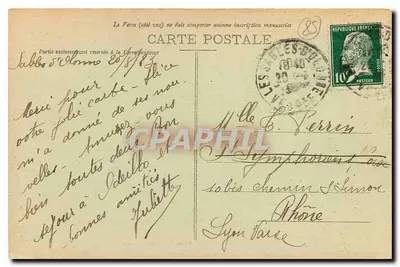 Le Recto (côté vue) ne doit comporter aucune inscription manuscrite
CARTE POSTALE
(85)
Partie exclusivement réservée à la Correspondance
Sables d'Olonne 20/8/23
Merci pour
votre jolie carte. Alice
m'a donné de ses nou-
velles. Amusez-vous
bien toutes deux. Bon
séjour à et
bonnes amitiés
Juliette
LES SABLES D'OLONNE
20
REPUBLIQUE FRANÇAISE
10c
PASTEUR
POSTES
Mlle C. Perrin
St Symphorien
10bis chemin St Simon
Rhône
Lyon Vaise
CPHRAPHIL